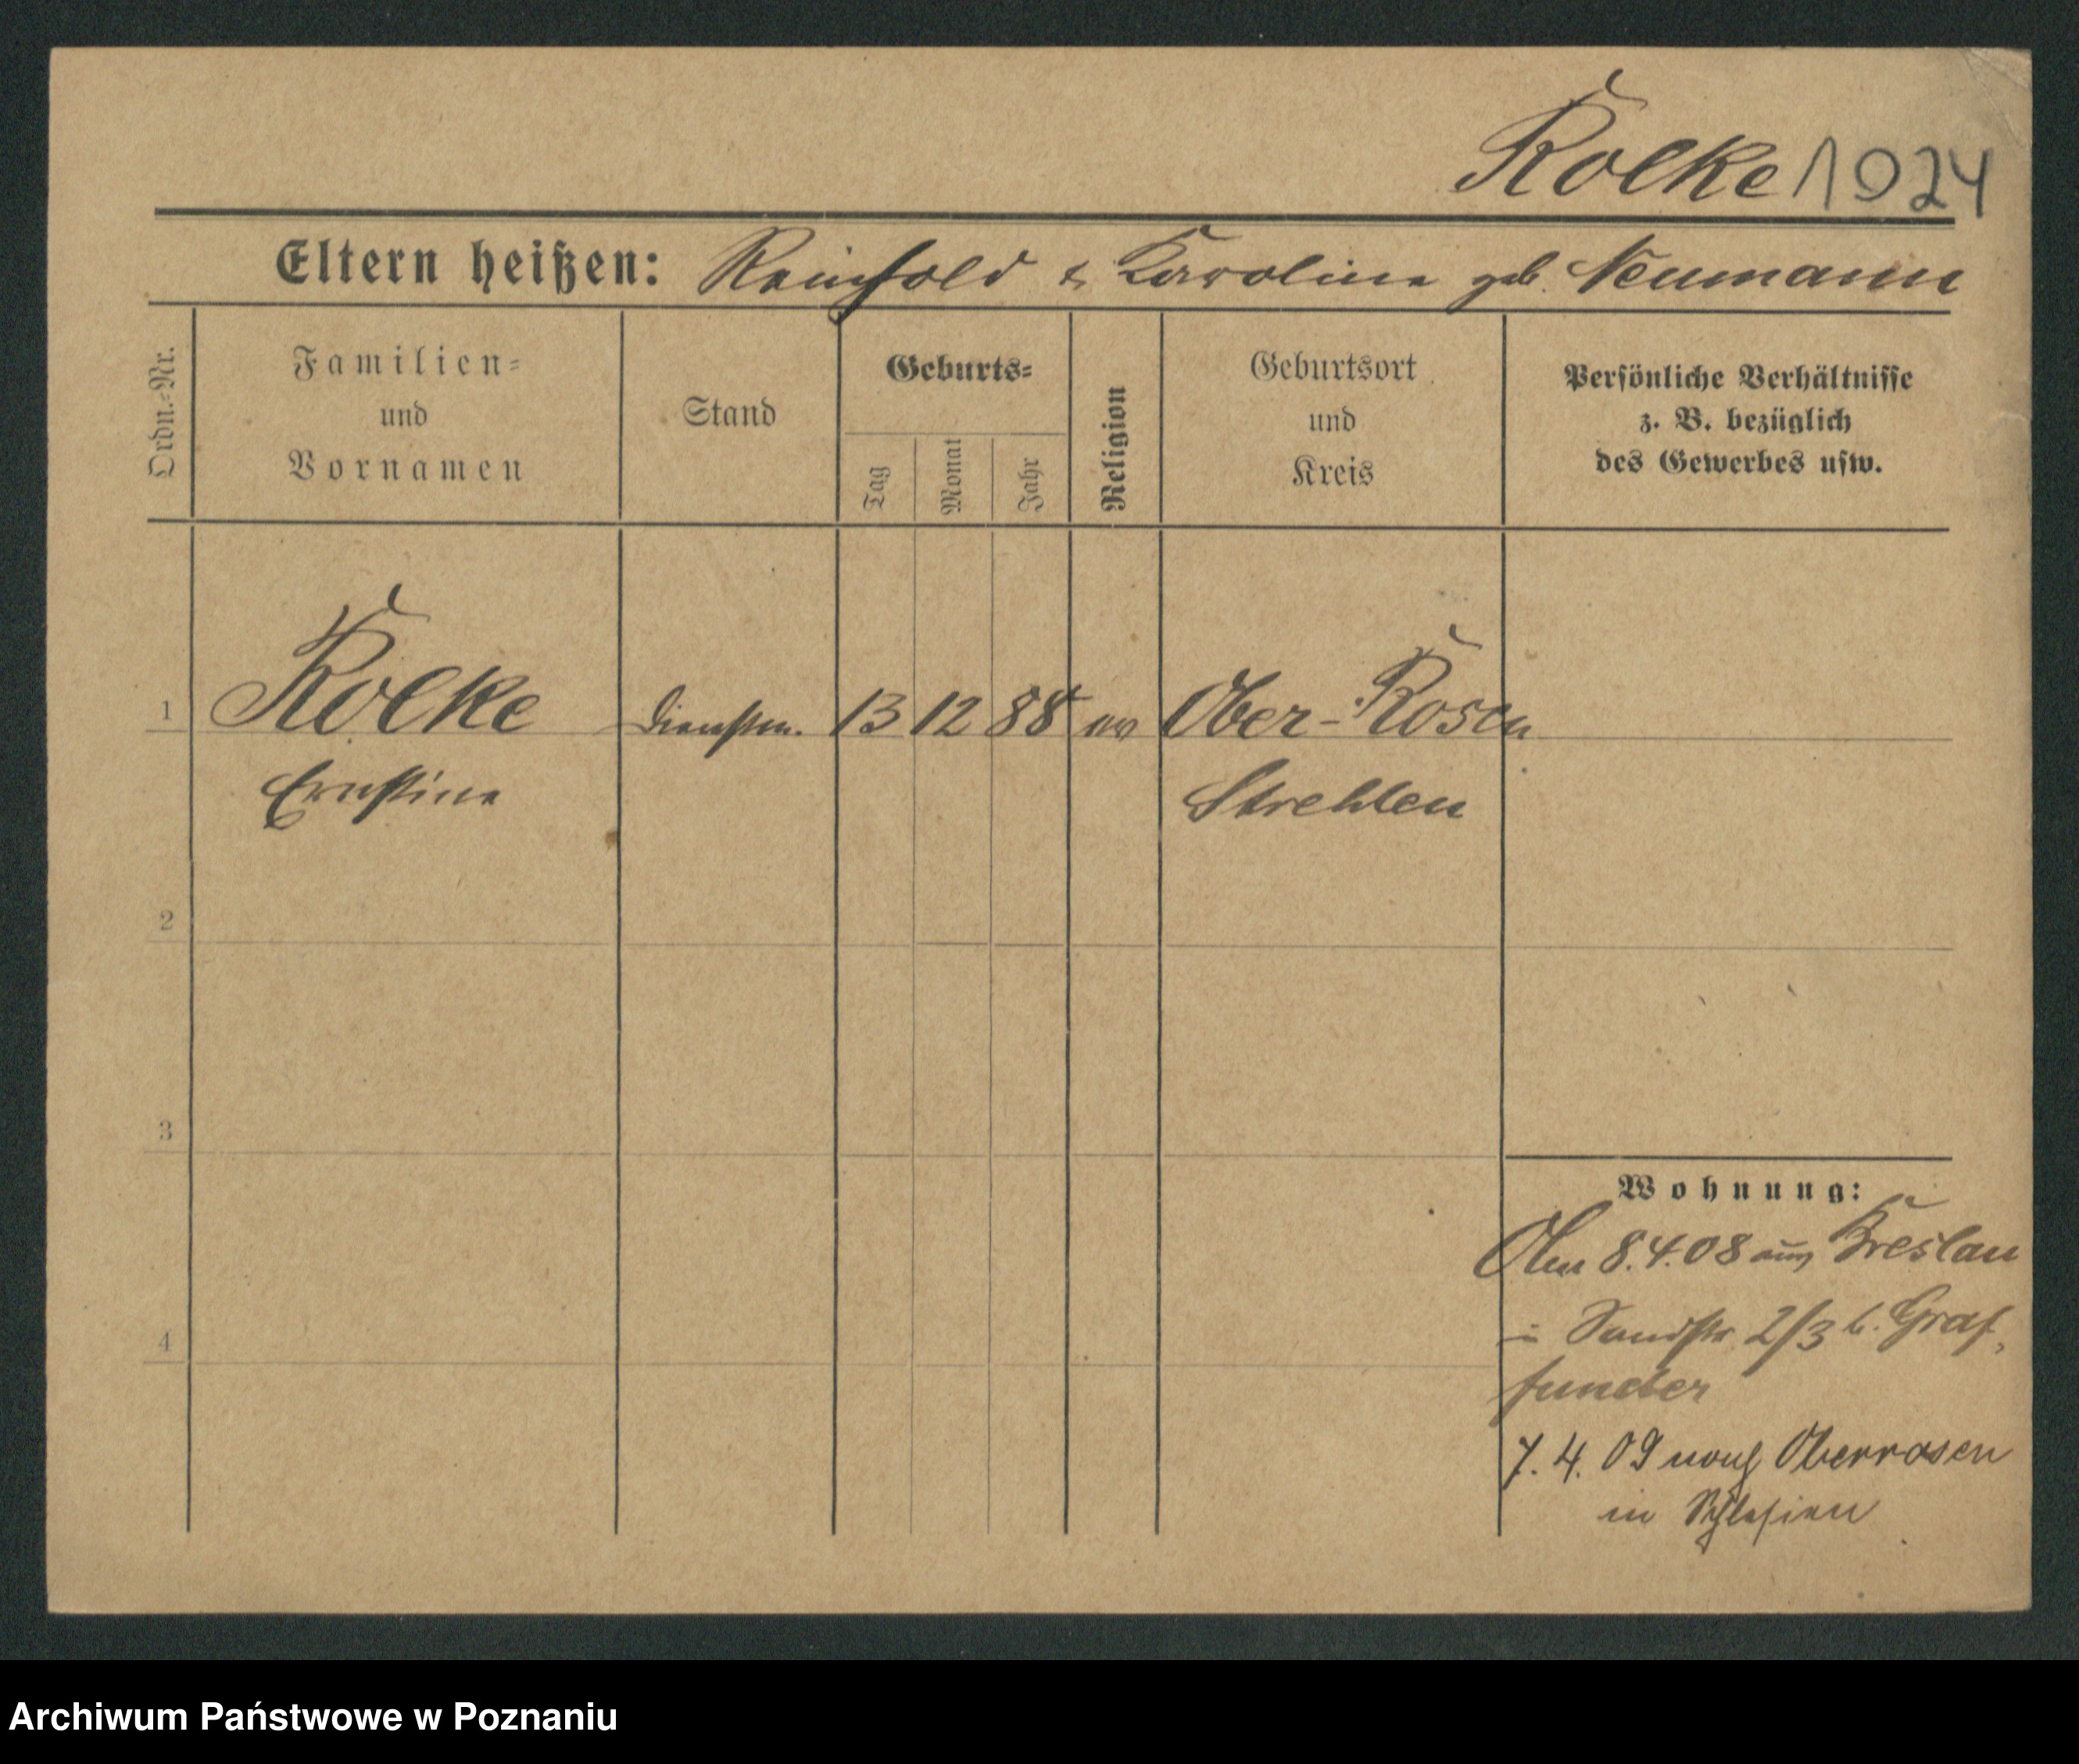 Kolke 1024
Eltern heißen: Reinhold & Karoline geb. Neumann
Ordn.-Nr.
Familien-
und
Vornamen
Stand
Geburts-
Tag
Monat
Jahr
Religion
Geburtsort
und
Kreis
Persönliche Verhältnisse
z. B. bezüglich
des Gewerbes usw.
1 Kolke Dienstm. 13 12 88 ev Ober-Rosen
Ernstine Strehlen
2
3
4
Wohnung:
8.4.08 aus Breslau
Sandstr. 2/3 b. Graf-
funder
7.4.09 nach Oberrosen
in Schlesien
Archiwum Państwowe w Poznaniu